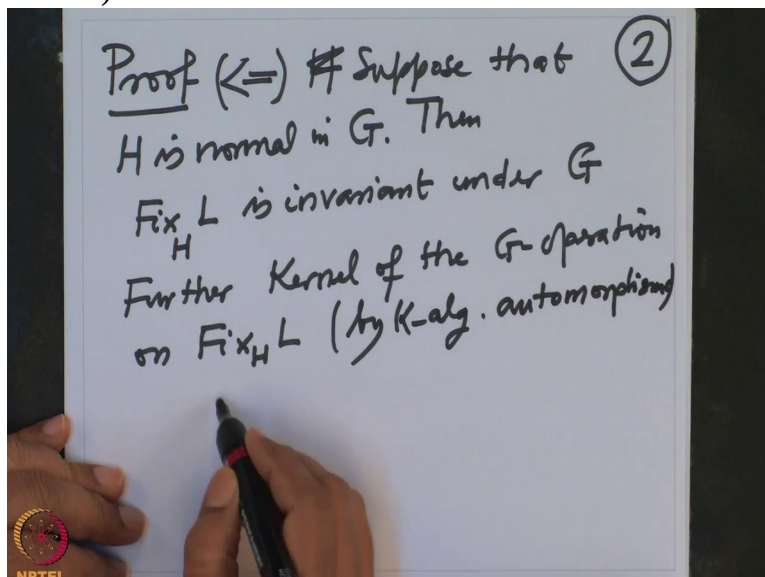 Proof (<=) Suppose that ②
H is normal in G. Then
Fix_H L is invariant under G
Further Kernel of the G-operation
on Fix_H L (by K-alg. automorphisms)
NPTEL